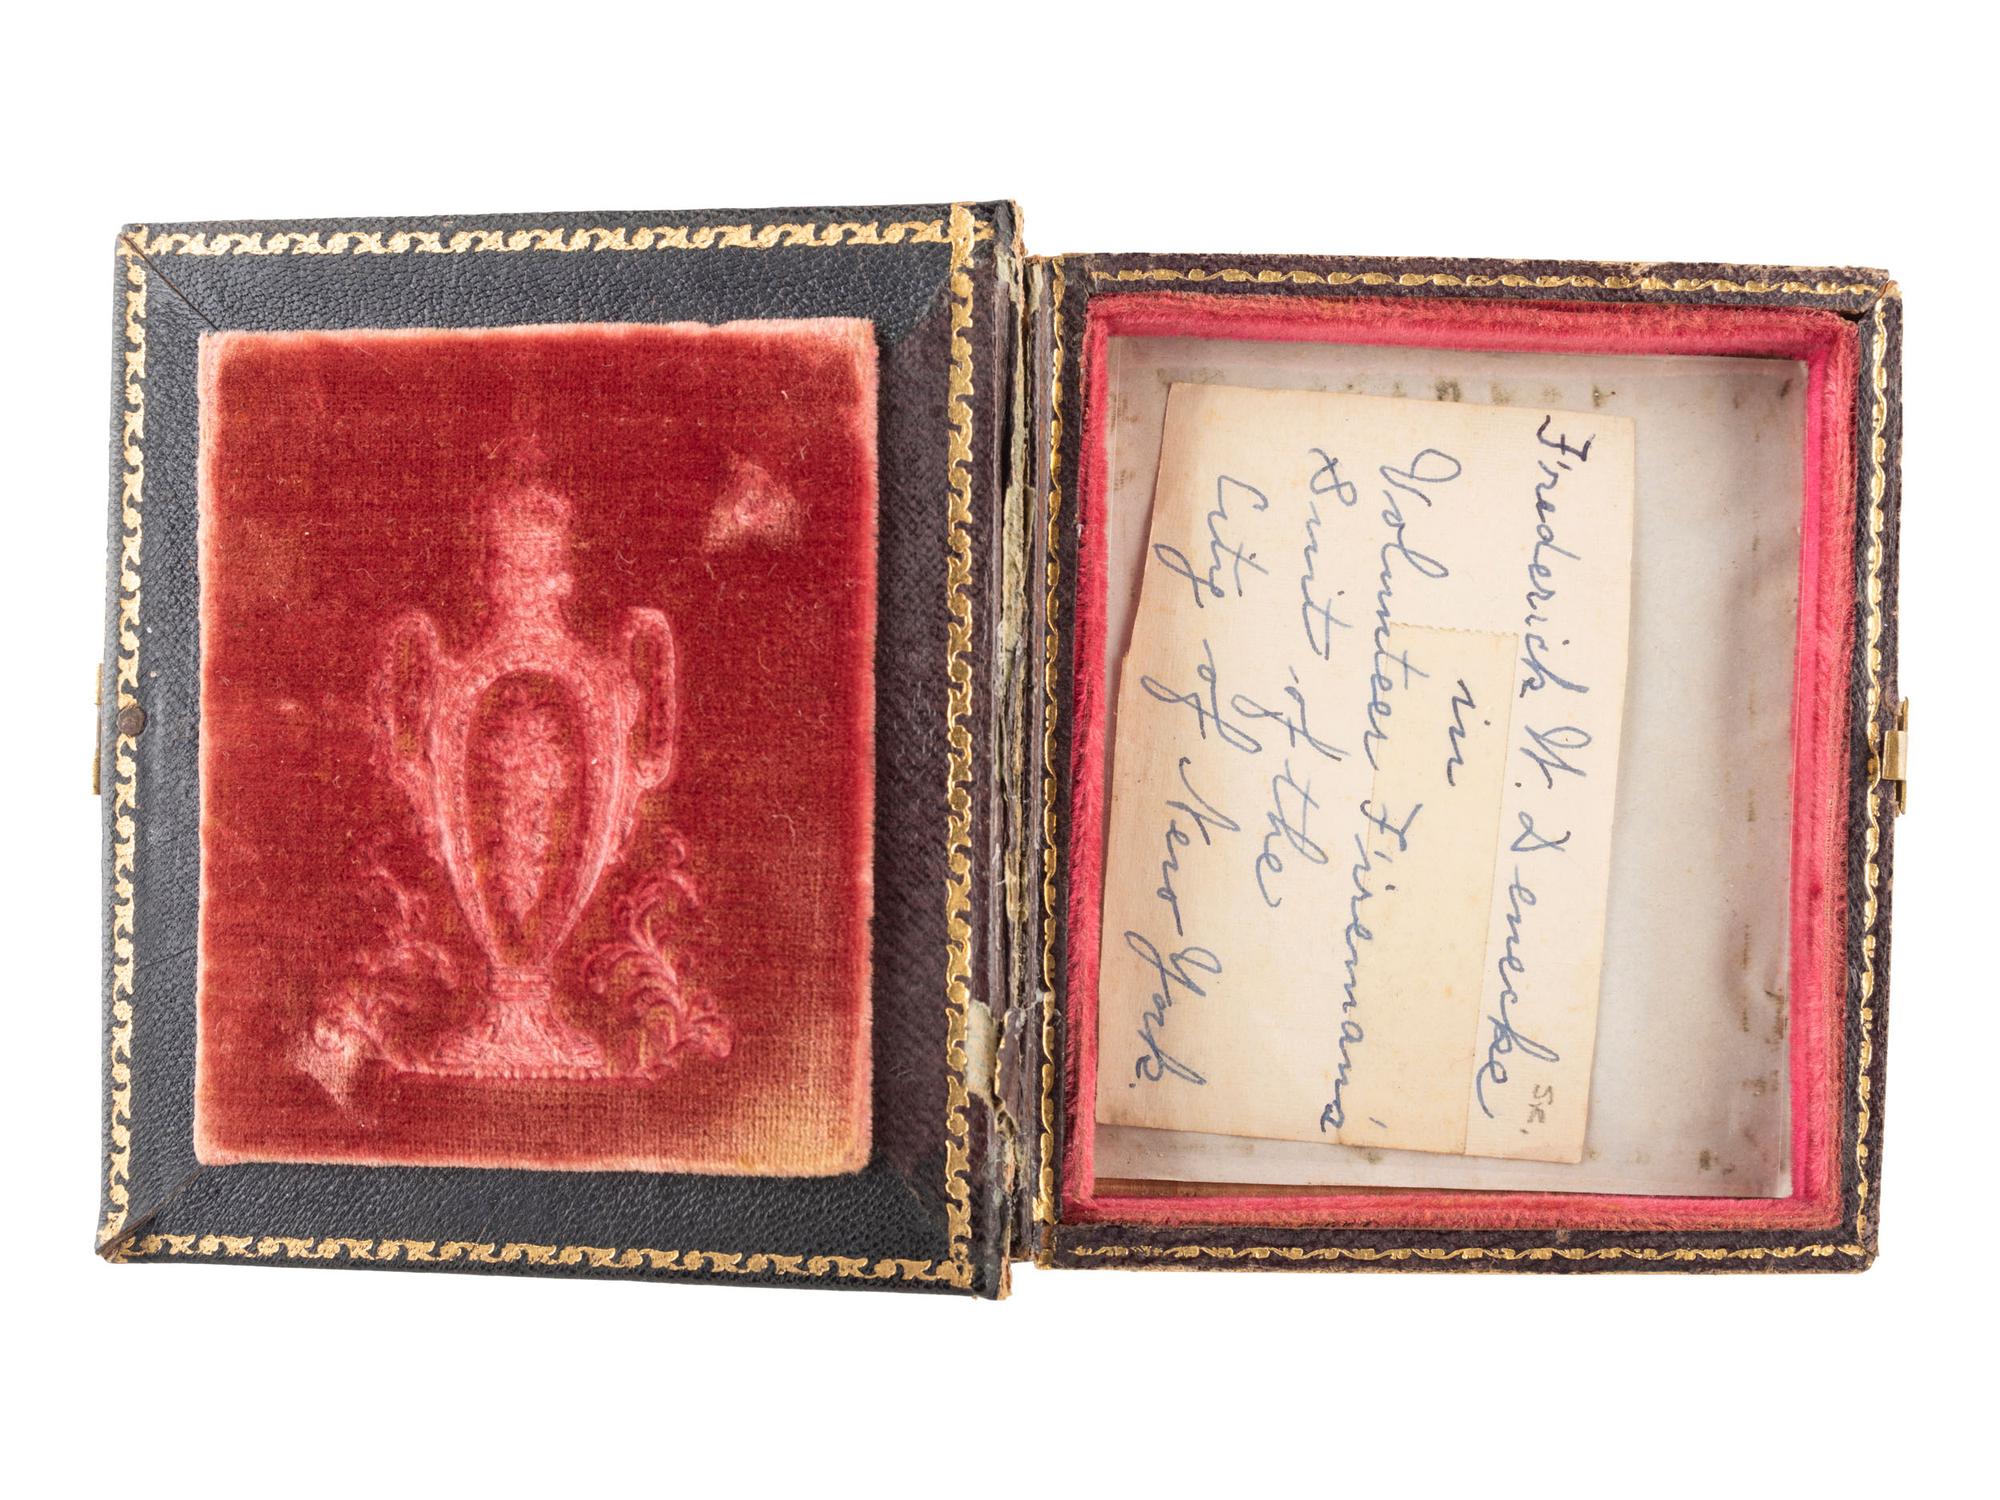 Frederick W. Denecke
Sr.
in
Volunteer Fireman's
Suit of the
City of New York.